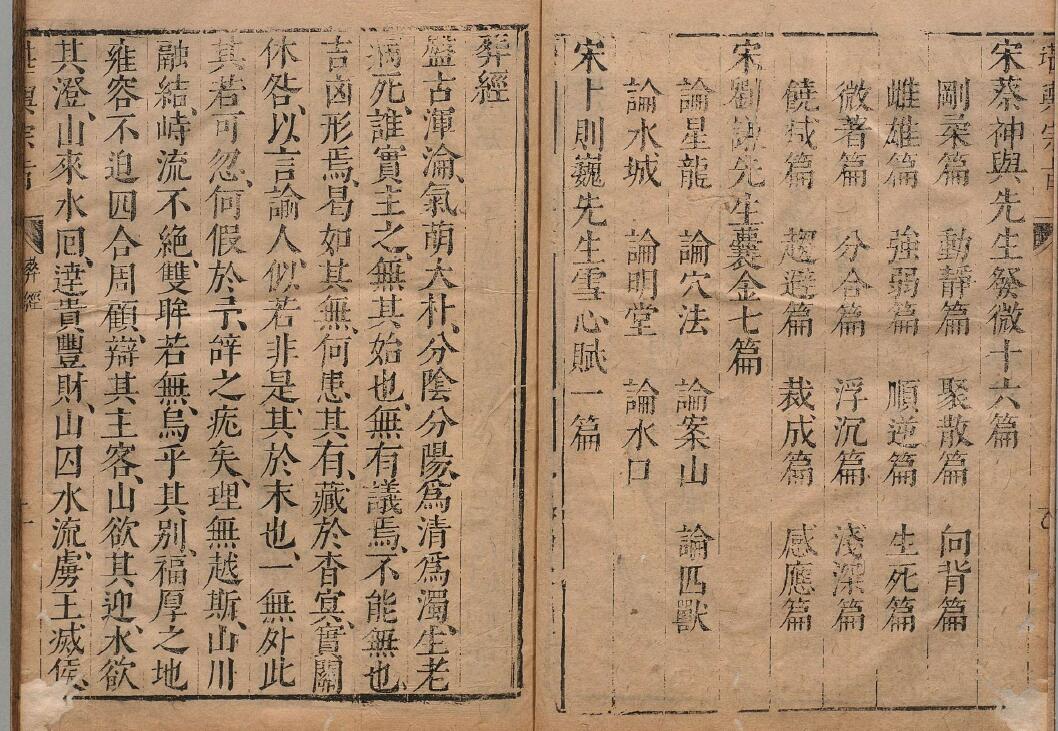 宋蔡神與先生發微十六篇
剛柔篇　動靜篇　聚散篇　向背篇
雌雄篇　強弱篇　順逆篇　生死篇
微著篇　分合篇　浮沉篇　淺深篇
饒減篇　趨避篇　裁成篇　感應篇
宋劉謙先生囊金七篇
論星龍　論穴法　論案山　論四獸
論水城　論明堂　論水口
宋卜則巍先生雪心賦一篇
葬經
盤古渾淪、氣萌大朴、分陰分陽、爲清爲濁、生老
病死、誰實主之、無其始也、無有議焉、不能無也、
吉凶形焉、曷如其無、何患其有、藏於杳冥、實關
休咎、以言諭人、似若非是、其於末也、一無外此
其若可忽、何假於予、辭之疣矣、理無越斯、山川
融結、峙流不絶、雙眸若無、烏乎其別、福厚之地
雍容不迫、四合周顧、辯其主客、山欲其迎、水欲
其澄、山來水囘、逹貴豐財、山囚水流、虜王滅侯、
葬經